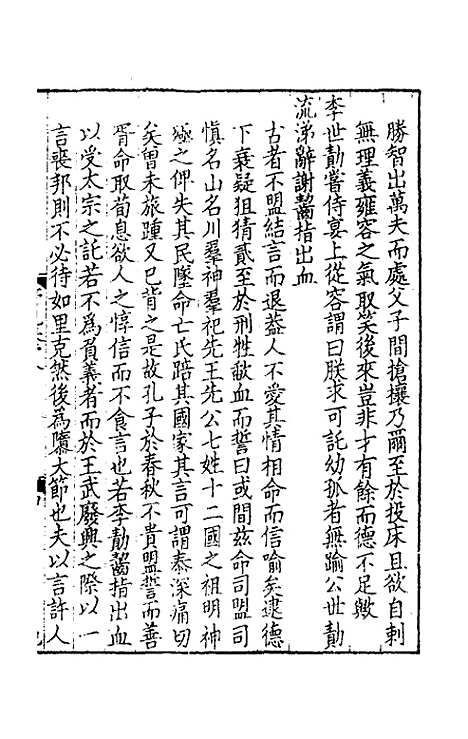 勝智出萬夫而處父子間搶攘乃爾至於投床且欲自刺
無理義雍容之氣取笑後來豈非才有餘而德不足歟
李世勣嘗侍宴上從容謂曰朕求可託幼孤者無踰公世勣
流涕辭謝齧指出血
古者不盟結言而退蓋人不愛其情相命而信喻矣逮德
下衰疑狙猜貳至於刑牲歃血而誓曰或間茲命司盟司
慎名山名川羣神羣祀先王先公七姓十二國之祖明神
殛之俾失其民墜命亡氏踣其國家其言可謂泰深痛切
矣曽未旅踵又已背之是故孔子於春秋不貴盟誓而善
胥命取荀息欲人之惇信而不食言也若李勣齧指出血
以受太宗之託若不爲負義者而於王武廢興之際以一
言喪邦則不必待如里克然後爲隳大節也夫以言許人